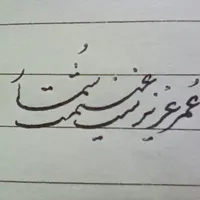 عُمر عزیزست غنیمت شُمار